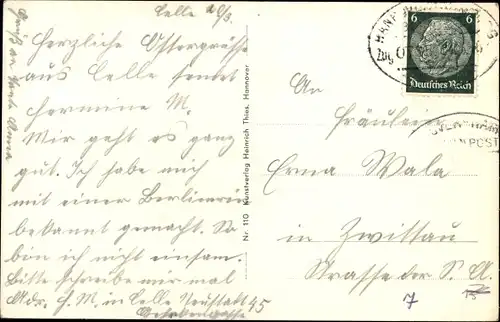 Celle 20/3.
Herzliche Ostergrüsse
aus Celle sendet
Hermine M.
Mir geht es ganz
gut. Ich habe auch
mit einer Berlinerin
bekannt gemacht. So
bin ich nicht einsam.
Bitte schreibe mir mal
Adr. H. M. in Celle Neustadt 45
Kunstverlag Heinrich Thies, Hannover
Nr. 110
6 6
Deutsches Reich
BAHNPOST
Zug
An
Fräulein
Erna Wala
in Zwittau
Strasse der S. A.
7 15